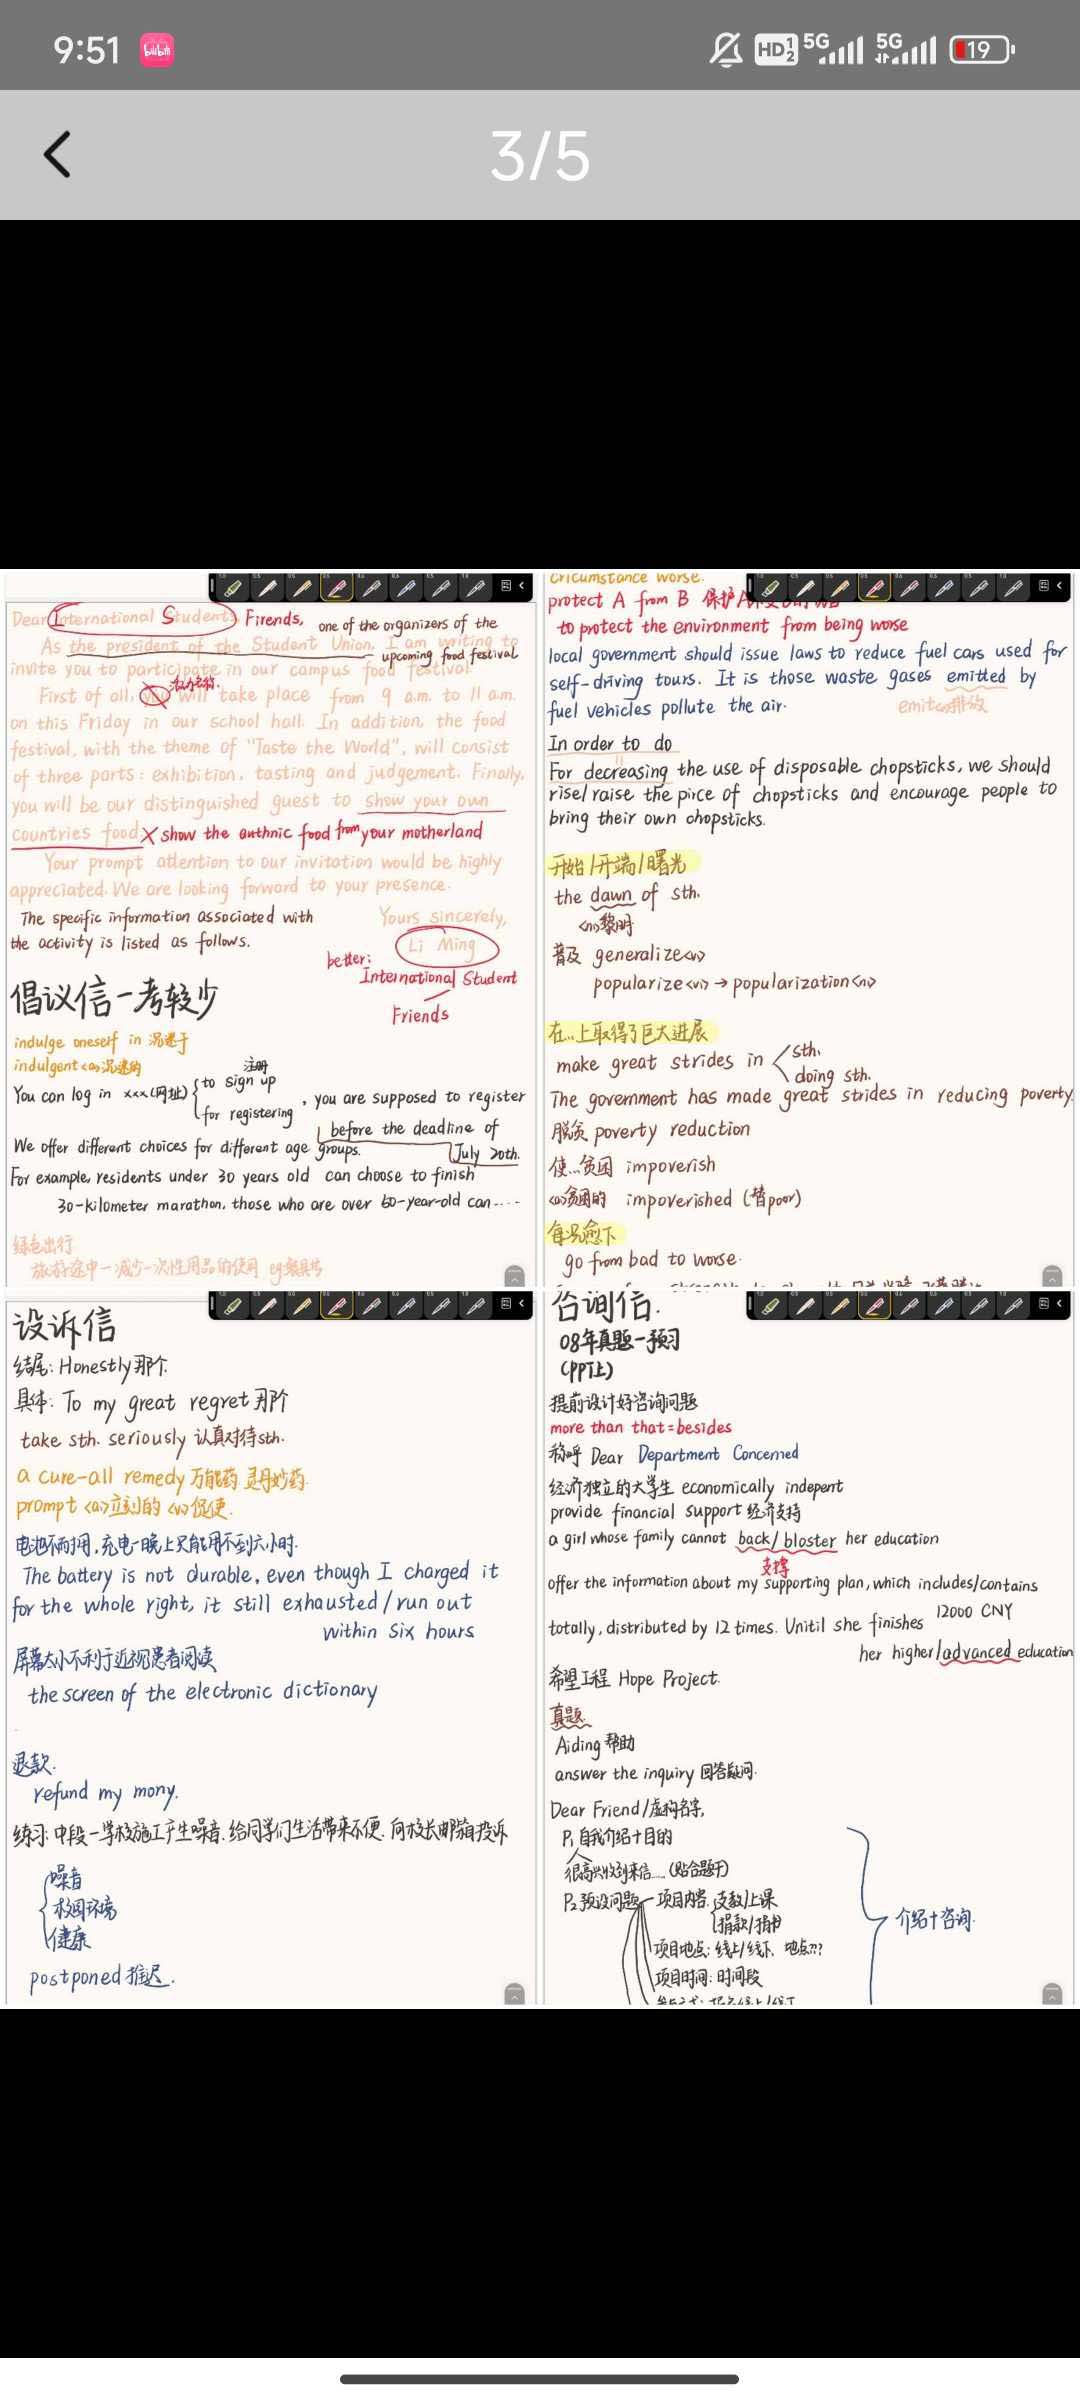 9:51
bilibili
HD 1 2 5G 5G 19
3/5
Dear International Students Firends,
one of the organizers of the
As the president of the Student Union, I am writing to
upcoming food festival
invite you to participate in our campus food festival.
活动名称.
First of all, you will take place from 9 a.m. to 11 a.m.
on this Friday in our school hall. In addition, the food
festival, with the theme of "Taste the World", will consist
of three parts: exhibition, tasting and judgement. Finally,
you will be our distinguished guest to show your own
countries food X show the anthnic food from your motherland
Your prompt attention to our invitation would be highly
appreciated. We are looking forward to your presence.
The specific information associated with
the activity is listed as follows.
Yours sincerely,
Li Ming
better:
International Student
Friends
倡议信一考较少
indulge oneself in 沉迷于
indulgent <a> 沉迷的
注册
You can log in xxx(网址) to sign up
for registering
, you are supposed to register
before the deadline of
July 20th.
We offer different choices for different age groups.
For example, residents under 30 years old can choose to finish
30-kilometer marathon, those who are over 60-year-old can....
绿色出行
旅游途中一减少一次性用品的使用 eg餐具等
cricumstance worse.
protect A from B 保护A
to protect the environment from being worse
local government should issue laws to reduce fuel cars used for
self-driving tours. It is those waste gases emitted by
fuel vehicles pollute the air.
emit<v>排放
In order to do
For decreasing the use of disposable chopsticks, we should
rise/raise the pirce of chopsticks and encourage people to
bring their own chopsticks.
开始/开端/曙光
the dawn of sth.
<n>黎明
普及 generalize<v>
popularize<v> → popularization<n>
在...上取得了巨大进展
make great strides in sth.
doing sth.
The government has made great strides in reducing poverty.
脱贫 poverty reduction
使...贫困 impoverish
<a>贫困的 impoverished (替poor)
每况愈下
go from bad to worse.
设诉信
结尾: Honestly 那个
具体: To my great regret 那个
take sth. seriously 认真对待sth.
a cure-all remedy 万能药 灵丹妙药.
prompt <a>立刻的 <v>促使.
电池不耐用,充电一晚上只能用不到六小时.
The battery is not durable, even though I charged it
for the whole right, it still exhausted/run out
within six hours
屏幕太小不利于近视患者阅读
the screen of the electronic dictionary
退款.
refund my mony.
练习: 中段一学校施工产生噪音. 给同学们生活带来不便. 向校长邮箱投诉
噪音
校园环境
健康
postponed 推迟.
咨询信.
08年真题一预习
(PPT上)
提前设计好咨询问题
more than that = besides
称呼 Dear Department Concerned
经济独立的大学生 economically indepent
provide financial support 经济支持
a girl whose family cannot back/bloster her education
支撑
offer the information about my supporting plan, which includes/contains
12000 CNY
totally, distributed by 12 times. Unitil she finishes
her higher/advanced education
希望工程 Hope Project.
真题.
Aiding 帮助
answer the inquiry 回答疑问.
Dear Friend/虚构名字,
P1 自我介绍+目的
很高兴收到来信.... (贴合题干)
P2 预设问题 项目内容. 支教/上课
捐款/捐书
项目地点: 线上/线下、地点???
项目时间: 时间段
介绍+咨询.